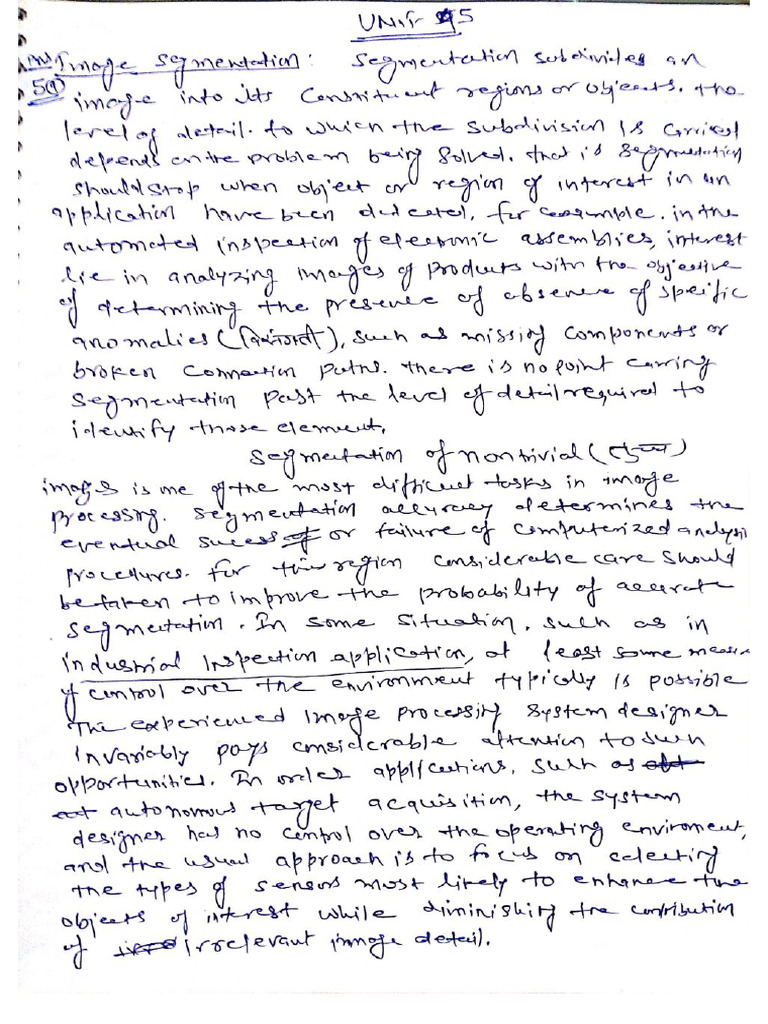 UNIT 5
Ans Image Segmentation: Segmentation subdivides an
5(a) image into its constituent regions or objects. the
level of detail. to which the subdivision is carried
depends on the problem being solved. that is segmentation
should stop when object or region of interest in an
application have been detected. for example. in the
automated inspection of electronic assemblies, interest
lie in analyzing images of products with the objective
of determining the presence of absence of specific
anomalies (विसंगती), such as missing components or
broken connection paths. there is no point carring
segmentation past the level of detail required to
identify those element.
segmentation of nontrivial
images is one of the most difficult tasks in image
processing. segmentation accuracy determines the
eventual sucess or failure of computerized analysis
procedures. for this region considerable care should
be taken to improve the probability of accurate
segmentation. In some situation, such as in
industrial inspection application, at least some measure
of control over the environment typically is possible
The experienced image processing system designer
invariably pays considerable attention to such
opportunities. In order applications, such as
autonomous target acquisition, the system
designer has no control over the operating enviroment,
and the usual approach is to focus on selecting
the types of sensors most likely to enhance the
objects of interest while diminishing the contribution
of irrelevant image detail.